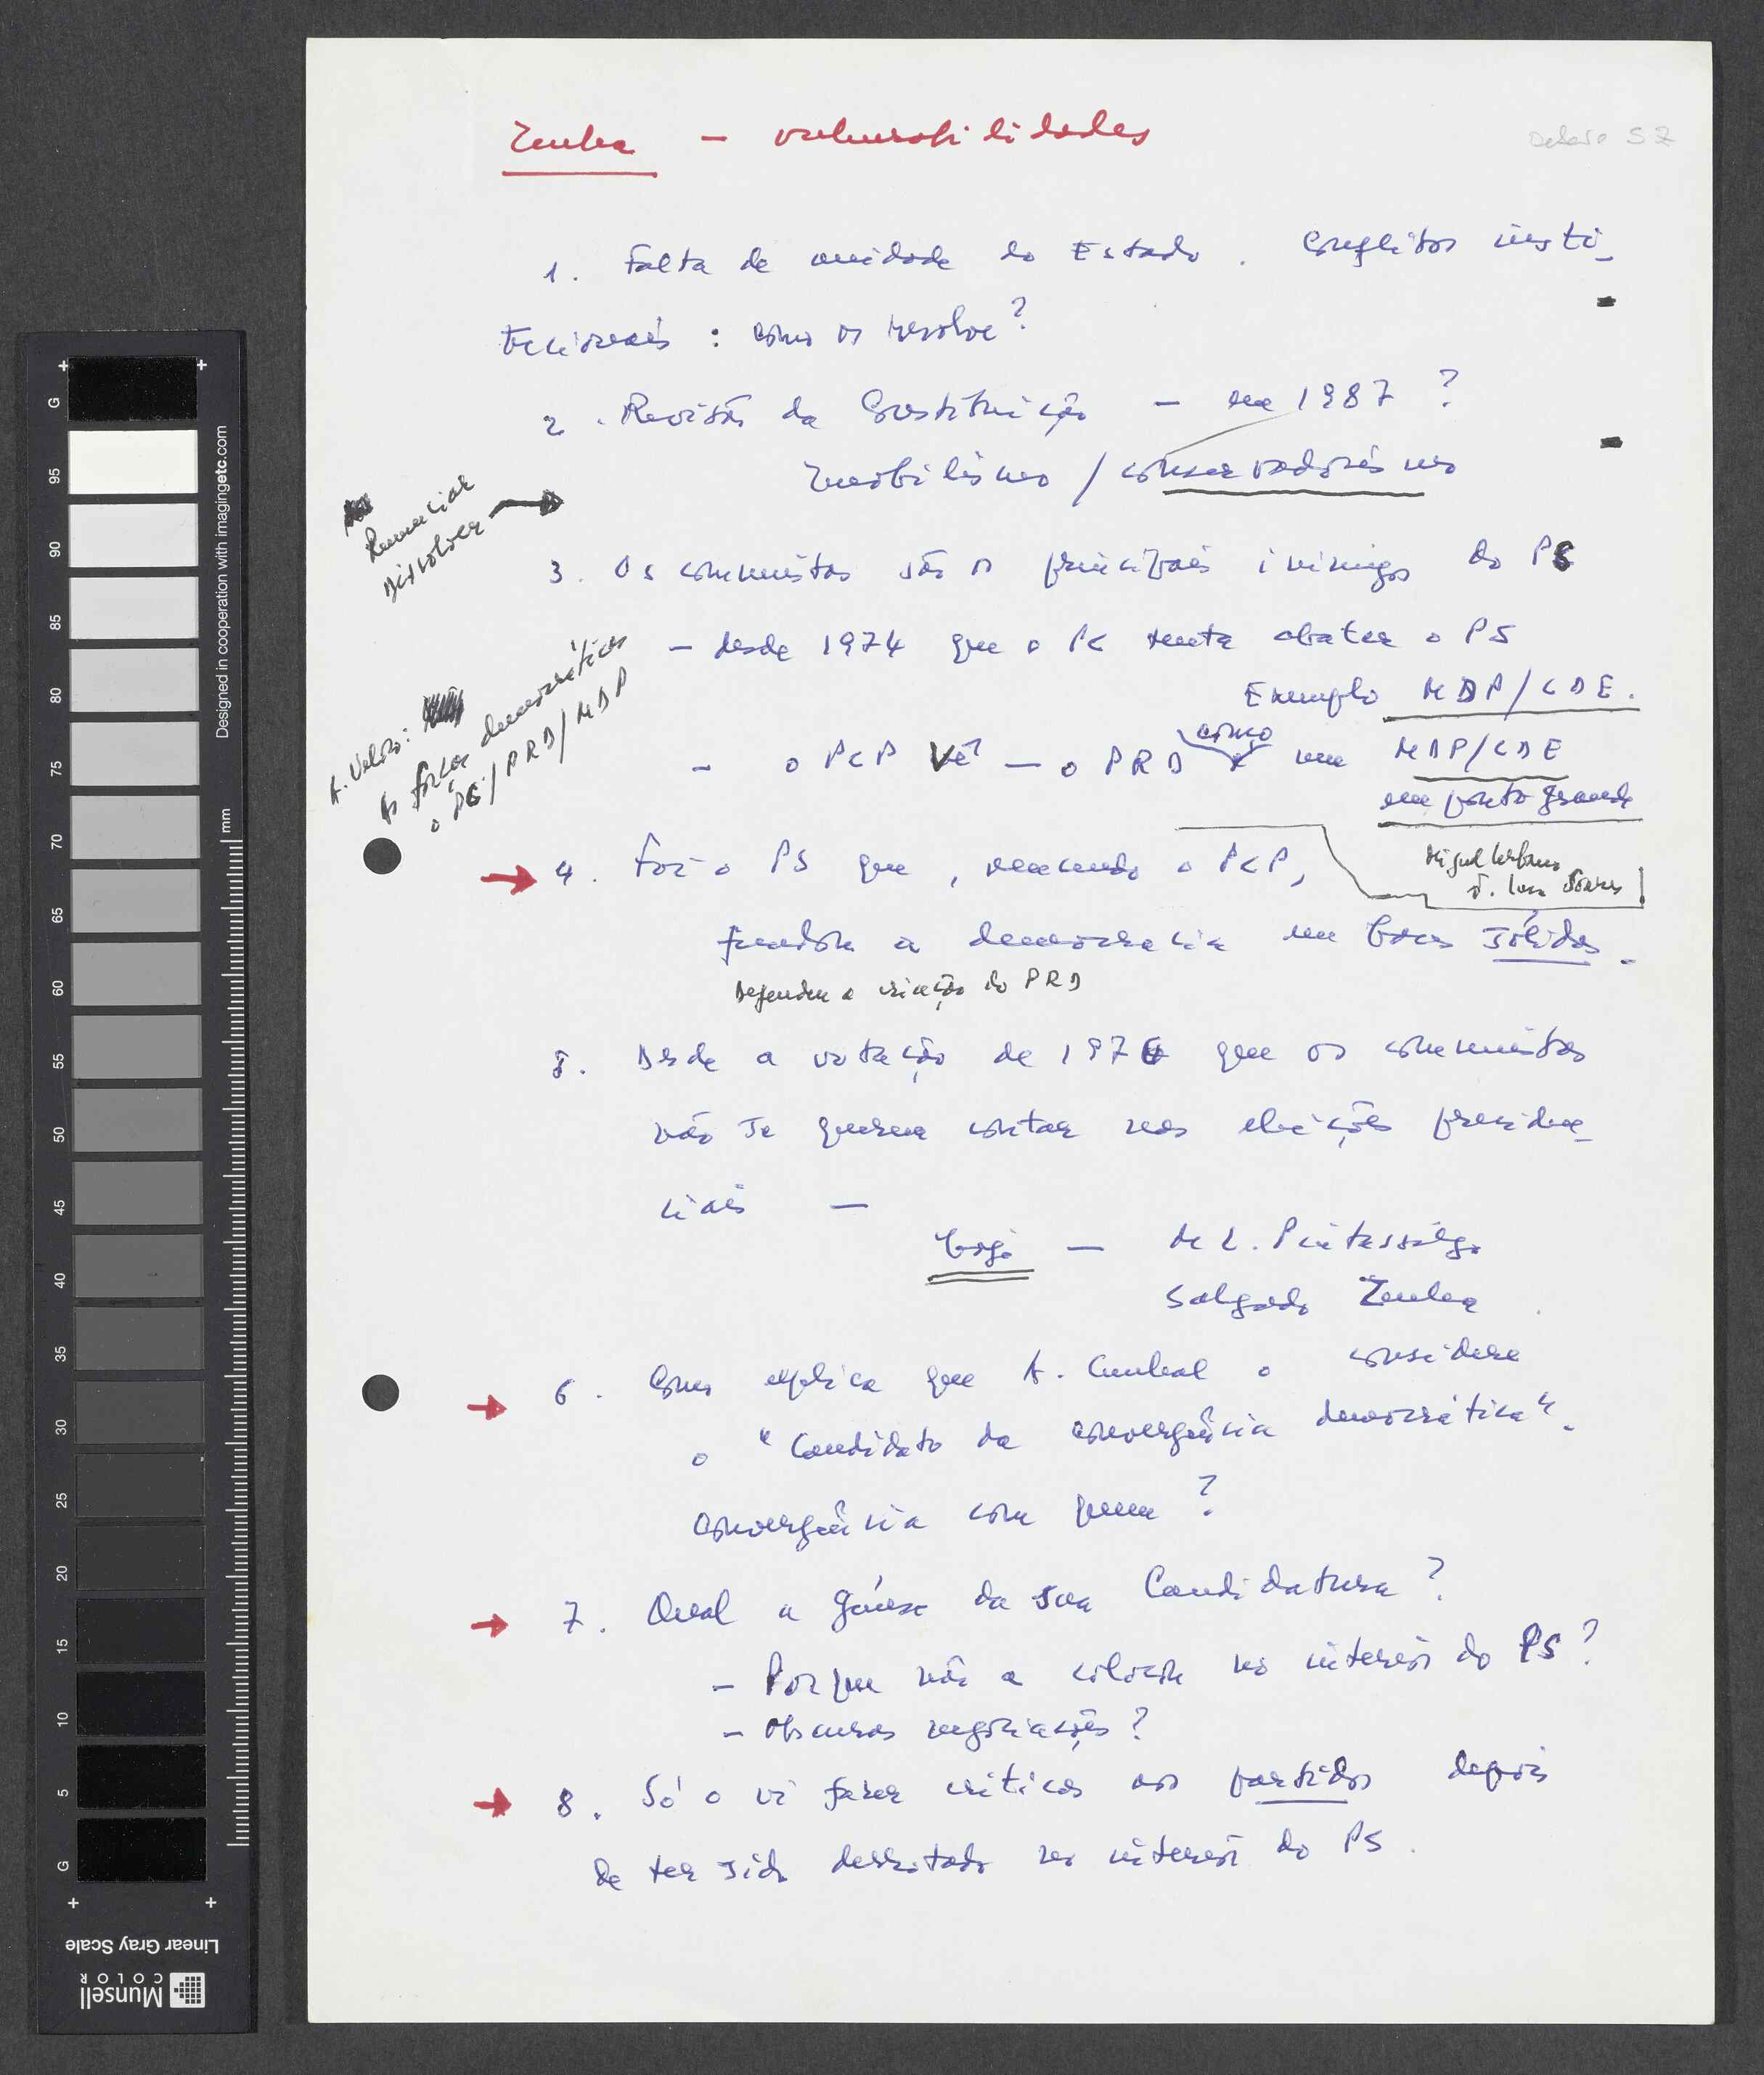 Zenha - vulnerabilidades
debate SZ
1. Falta de unidade do Estado. Conflitos insti-
tucionais : como os resolve?
2. Revisão da Constituição - em 1987 ?
Imobilismo / conservadorismo
Renunciar
Dissolver
3. Os comunistas são os principais inimigos do PS
- desde 1974 que o PC tenta abater o PS
Exemplo MDP/CDE.
- o PCP vê - o PRD como um MDP/CDE
em ponto grande
A. Veloso:
As forças democráticas
o PS/PRD/MDP
Miguel Urbano
4. Foi o PS que, vencendo o PCP,
fundou a democracia em bases sólidas.
Defender a criação do PRD
5. Desde a votação de 1976 que os comunistas
não se querem contar nas eleições presiden-
ciais -
hoje - M. L. Pintassilgo
Salgado Zenha
6. Como explica que A. Cunhal o considere
o "Candidato da convergência democrática".
Convergência com quem ?
7. Qual a génese da sua Candidatura ?
- Porque não a colocou no interior do PS ?
- Obscuras negociações ?
8. Só o vi fazer críticas aos partidos depois
de ter sido derrotado no interior do PS.
Designed in cooperation with imagingetc.com
mm
G 95 90 85 80 75 70 65 60 55 50 45 40 35 30 25 20 15 10 5 G
Linear Gray Scale
Munsell
COLOR